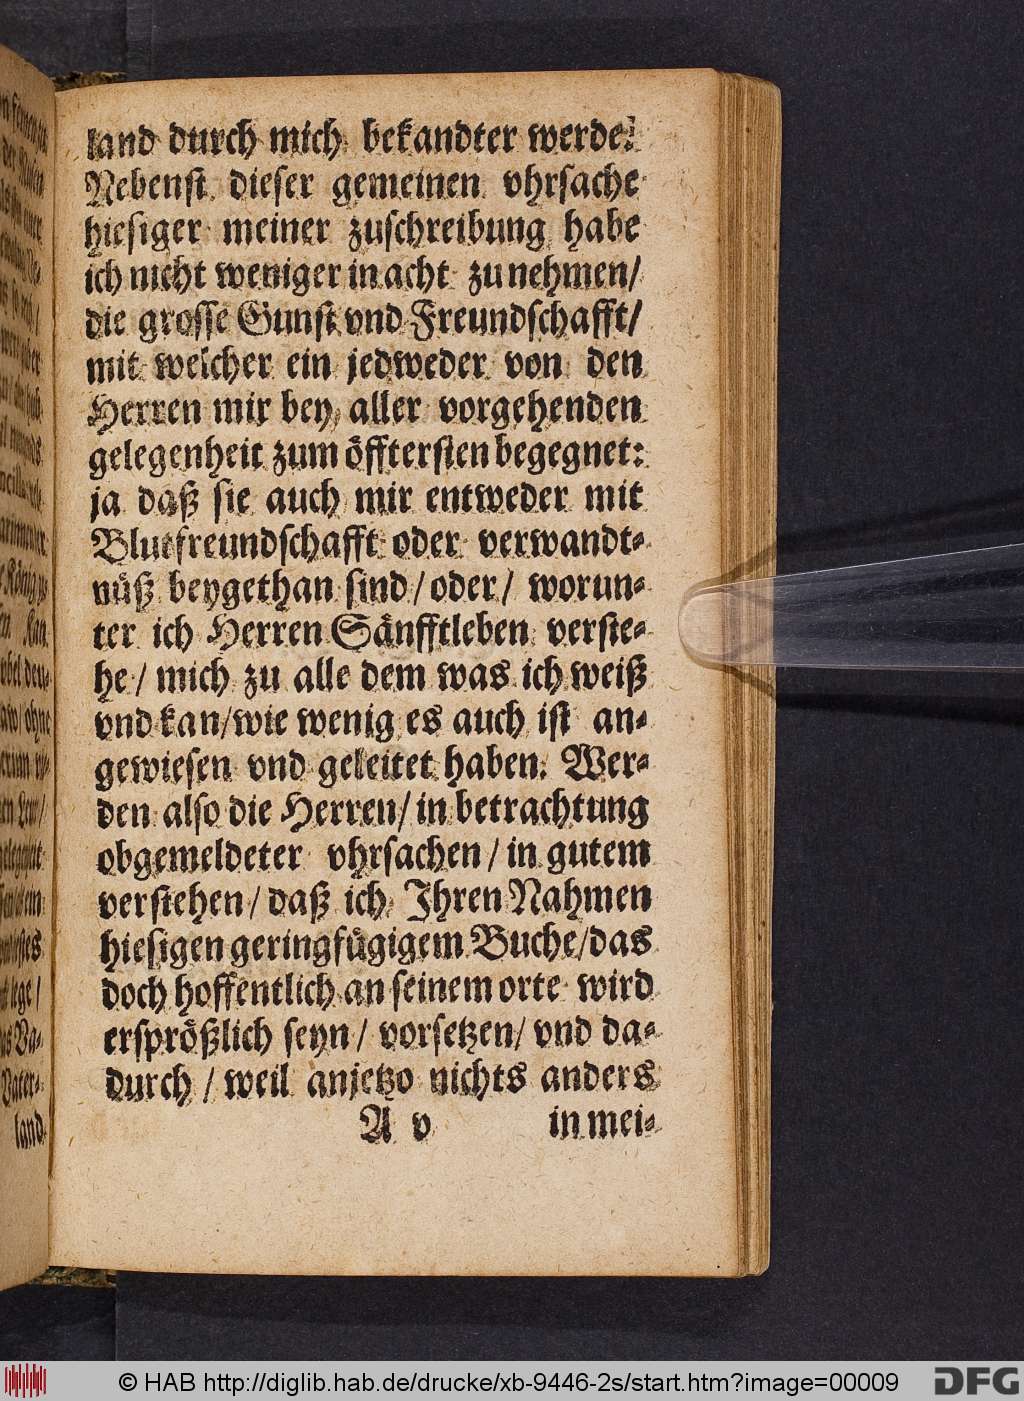 land durch mich bekandter werde.
Nebenst dieser gemeinen vhrsache
hiesiger meiner zuschreibung habe
ich nicht weniger in acht zu nehmen/
die grosse Gunst vnd Freundschafft/
mit welcher ein jedweder von den
Herren mir bey aller vorgehenden
gelegenheit zum öfftersten begegnet:
ja daß sie auch mir entweder mit
Blutfreundschafft oder verwandt-
nüß beygethan sind/oder/ worun-
ter ich Herren Sänfftleben verste-
he/ mich zu alle dem was ich weiß
vnd kan/wie wenig es auch ist an-
gewiesen vnd geleitet haben. Wer-
den also die Herren/ in betrachtung
obgemeldeter vhrsachen/ in gutem
verstehen/ daß ich Ihren Nahmen
hiesigen geringfügigem Buche/das
doch hoffentlich an seinem orte wird
ersprößlich seyn/ vorsetzen/ vnd da-
durch/ weil anjetzo nichts anders
A v in mei-
land
© HAB http://diglib.hab.de/drucke/xb-9446-2s/start.htm?image=00009
DFG